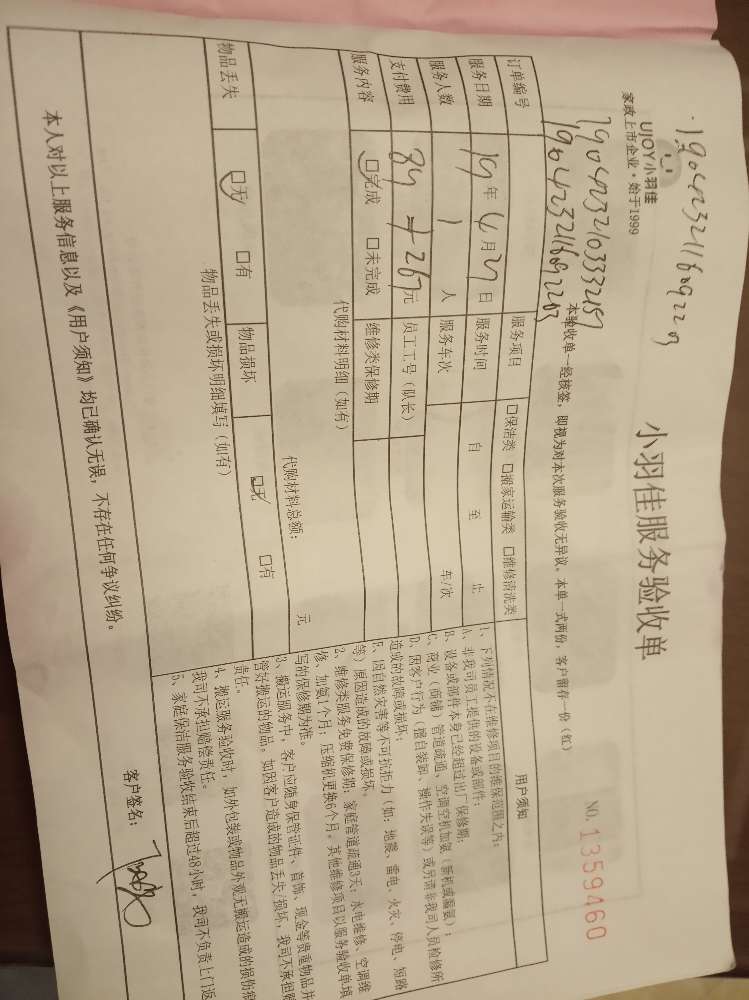 UJOY小羽佳
家政上市企业·始于1999
小羽佳服务验收单
NO. 1359460
本验收单一经核签，即视为对本次服务验收无异议。本单一式两份，客户留存一份（红）
订单编号
服务项目 □保洁类 □搬家运输类 □维修清洗类
服务日期 19年4月27日 服务时间 自 至 止
服务人数 1 人 服务车次 车/次
支付费用 元 员工工号（队长）
服务内容 □完成 □未完成 维修类保修期
代购材料明细（如有）
代购材料总额： 元
物品丢失 □无 □有 物品损坏 □无 □有
物品丢失或损坏明细填写（如有）
用户须知
1、下列情况不在维修项目的维保范围之内：
A、非我司员工提供的设备或部件；
B、设备或部件本身已经超过出厂保修期；
C、商业（商铺）管道疏通、空调空机加氨（新机或漏氨）；
D、因客户行为（擅自装卸、操作失误等）或另请非我司人员检修所
造成的故障或损坏；
E、因自然灾害等不可抗拒力（如：地震、雷电、火灾、停电、短路
等）原因造成的故障或损坏。
2、维修类服务免费保修期：家庭管道疏通3天；水电维修、空调维
修、加氨1个月；压缩机更换6个月。其他维修项目以服务验收单填
写的保修期为准。
3、搬运服务中，客户应随身保管证件、首饰、现金等贵重物品并
管好搬运的物品。如因客户造成的物品丢失/损坏，我司不承担赔
责任。
4、搬运服务验收时，如外包装或物品外观无搬运造成的损伤痕
我司不承担赔偿责任。
5、家庭保洁服务验收结束后超过48小时，我司不负责上门返
本人对以上服务信息以及《用户须知》均已确认无误，不存在任何争议纠纷。
客户签名：